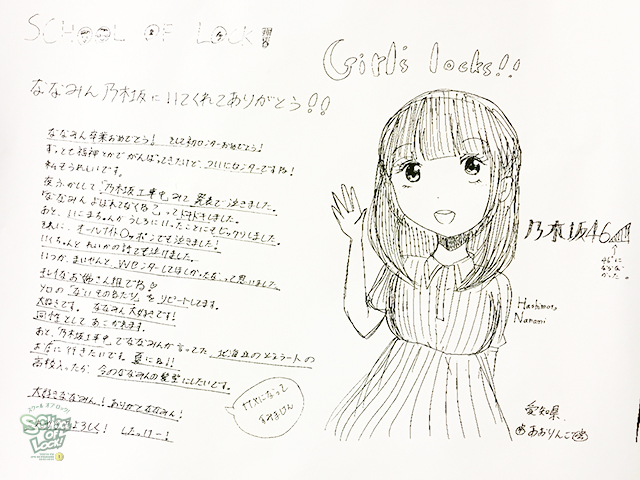 SCHOOL OF LOCK!
Girls locks!!
ななみん乃木坂にいてくれてありがとう!!
ななみん卒業おめでとう! そして初センターおめでとう!
ずっと七福神とかでがんばってきたけど、ついにセンターですね!
私もうれしいです。
夜ふかしして「乃木坂工事中」みて発表で泣きました。
ななみんよばれてなくね?ってドキドキしました。
あと、いこまちゃんがうしろにいったことにもビックリしました。
オールナイトロッポンでも泣きました!
いくちゃんとれいかの話でも泣けました。
いつか、まいやんとWセンターしてほしかったなって思いました
お姉さん組である
ソロの「ないものねだり」をリピートしてます。
大好きです。 ななみん大好きです!
同性としてあこがれます。
あと、「乃木坂工事中」でななみんが言ってた 北海道の
お店に行きたいです。夏に!!
高校入ったら、今のななみんの髪型にしたいです。
大好きななみん!ありがとななみん!
よろしく! したっけー!
になって
すみません
乃木坂46
46に
なっ
かった。
Hashimoto
Nanami
愛知県
あおりんご
スクールオブロック!
SCHOOL OF LOCK!